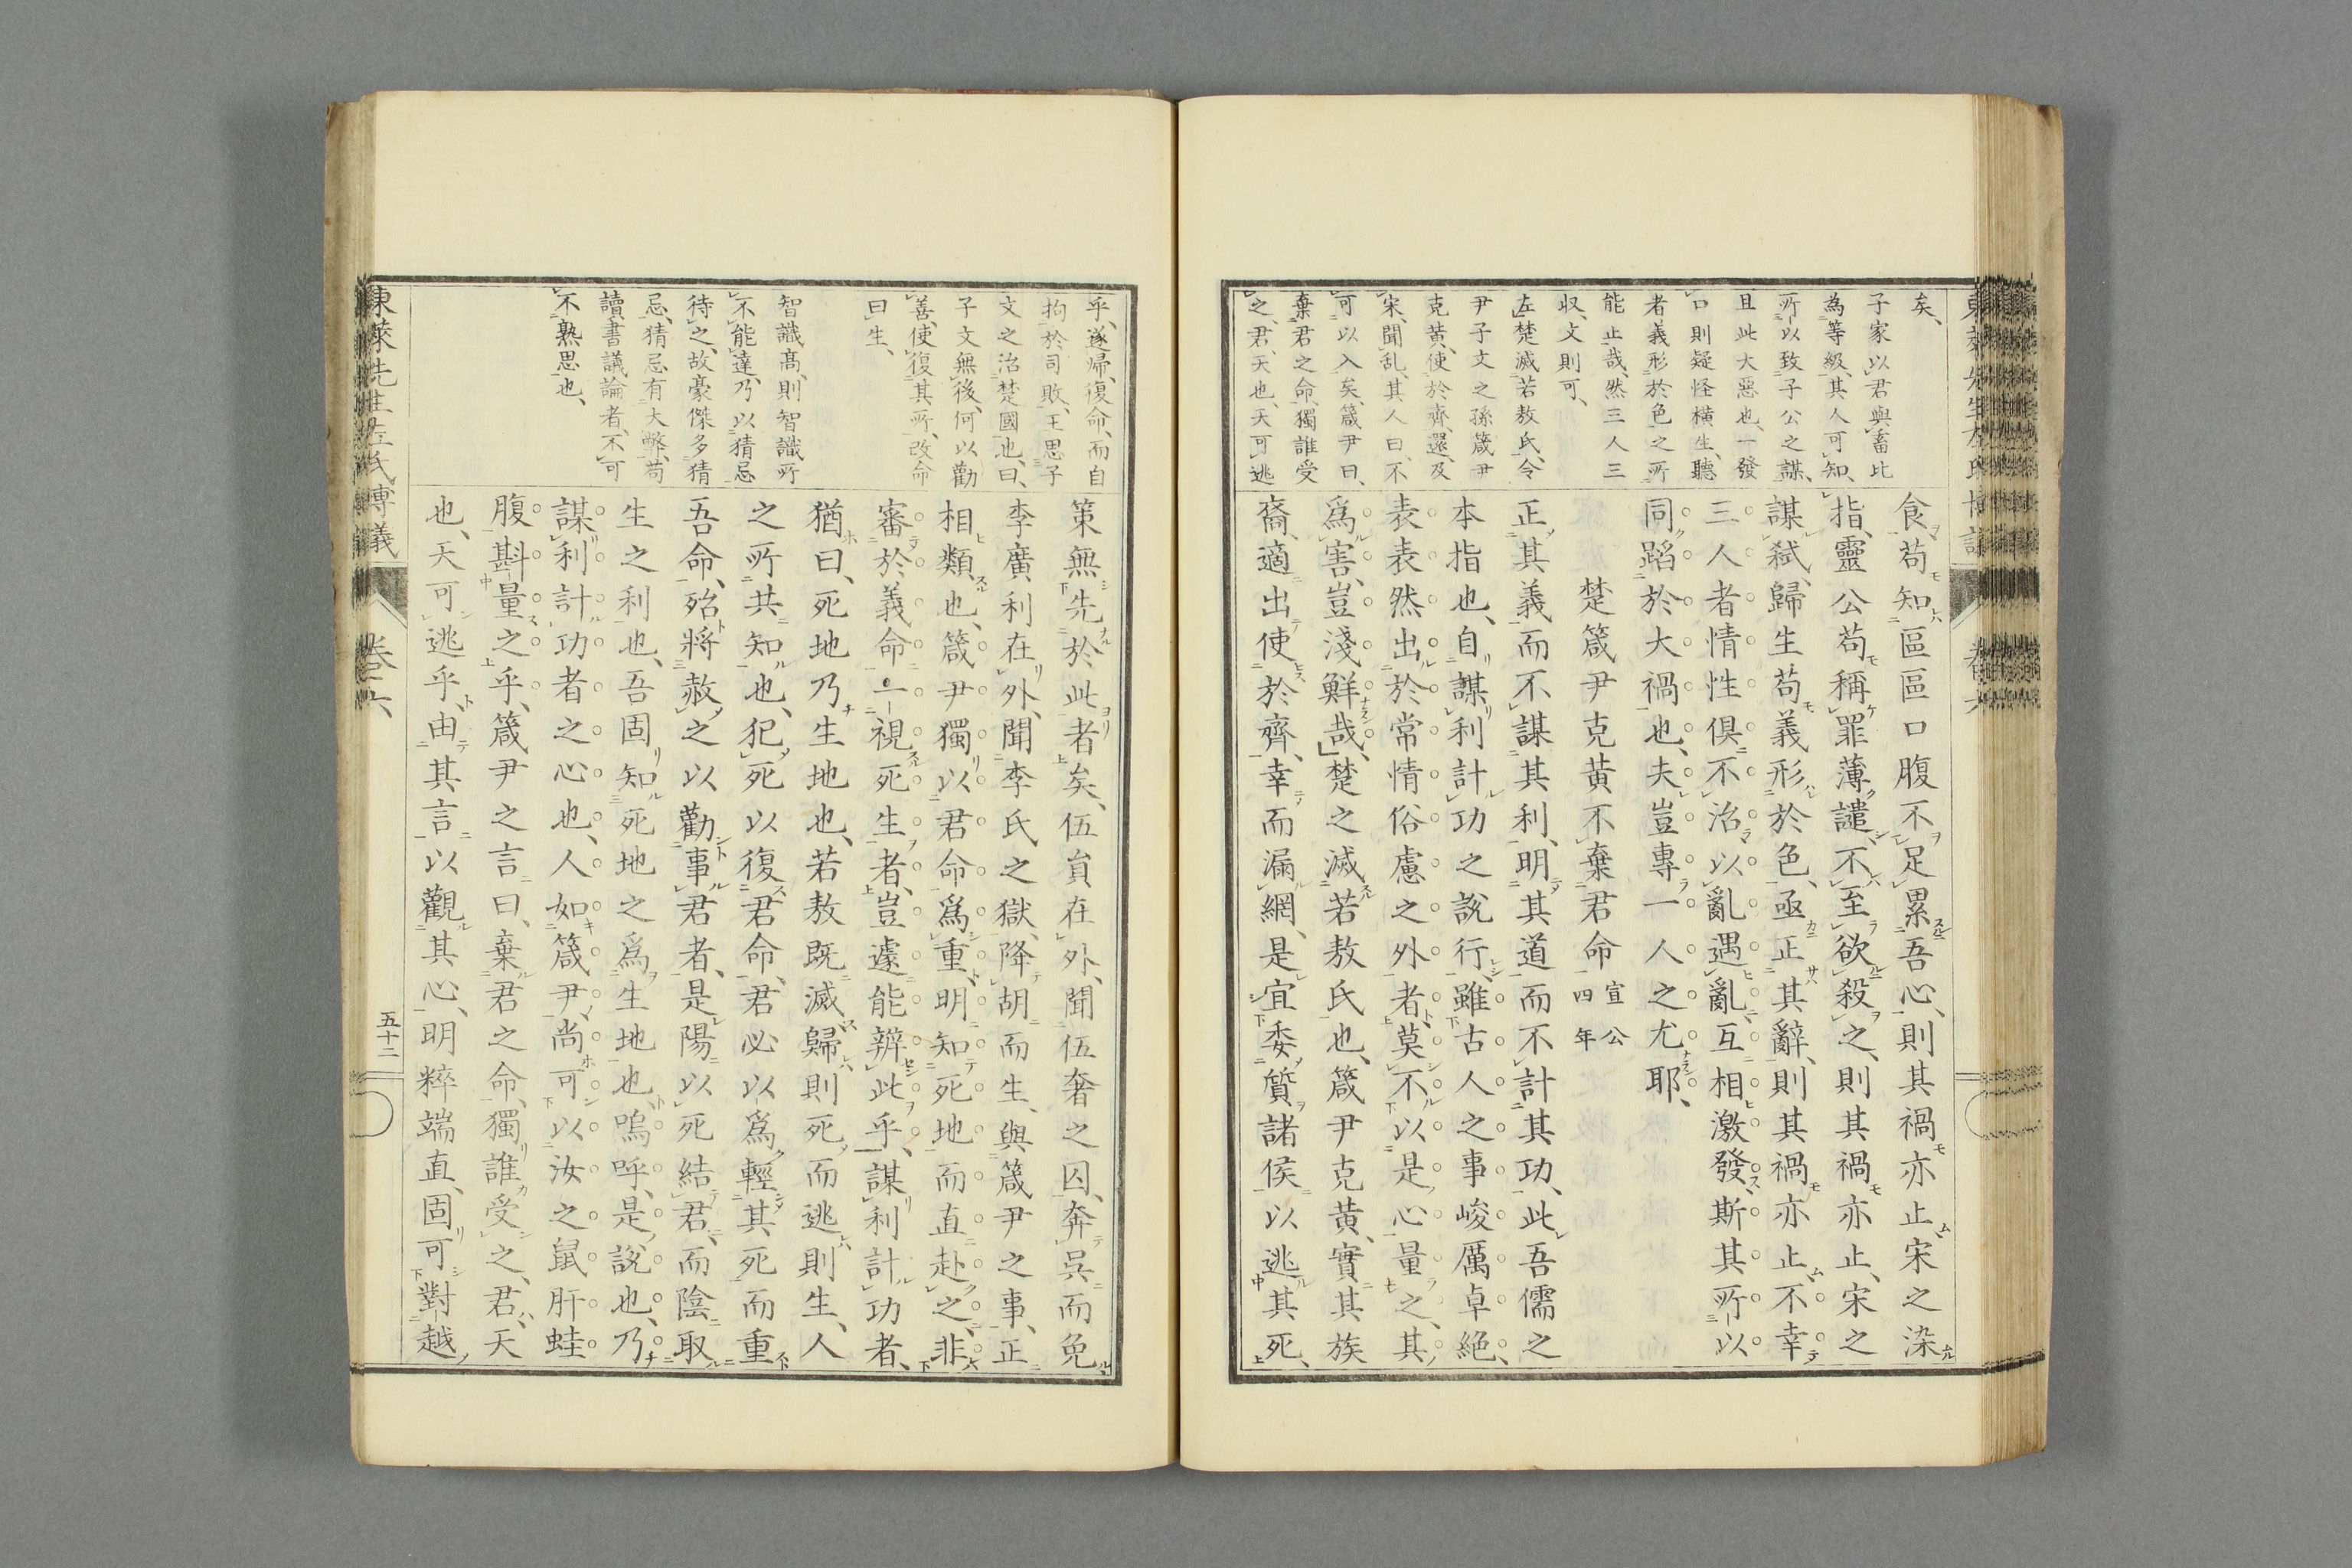 矣、
子家以君與畜比
為等級、其人可知、
所以致子公之謀、
且此大惡也、一發
口則疑怪橫生、聽
者義形於色之所
能止哉、然三人三
収、文則可、
左楚滅若敖氏、令
尹子文之孫箴尹
克黃、使於齊、還、及
宋、聞乱、其人曰、不
可以入矣、箴尹曰、
棄君之命、獨誰受
之、君、天也、天可逃
食苟知區區口腹不足累吾心、則其禍亦止宋之染
指、靈公苟稱罪薄譴、不至欲殺之、則其禍亦止、宋之
謀弑、歸生苟義形於色、亟正其辭、則其禍亦止、不幸
三人者情性俱不治、以亂遇亂、互相激發、斯其所以
同蹈於大禍也、夫豈專一人之尤耶、
楚箴尹克黃不棄君命 宣公四年
正其義而不謀其利、明其道而不計其功、此吾儒之
本指也、自謀利計功之說行、雖古人之事峻厲卓絕、
表表然出於常情俗慮之外者、莫不以是心量之、其
爲害、豈淺鮮哉、楚之滅若敖氏也、箴尹克黃、實其族
裔、適出使於齊、幸而漏網、是宜委質諸侯以逃其死、
乎、遂歸、復命、而自
拘於司敗、王思子
文之治楚國也、曰、
子文無後、何以勸
善、使復其所、改命
曰生、
智識高、則智識所
不能達、乃以猜忌
待之、故豪傑多猜
忌、猜忌有大弊、苟
讀書議論者、不可
不熟思也、
策無先於此者矣、伍員在外、聞伍奢之囚、奔吳而免
李廣利在外、聞李氏之獄、降胡而生、與箴尹之事、正
相類也、箴尹獨以君命爲重、明知死地而直赴之、非
審於義命一視死生者、豈遽能辨此乎、謀利計功者、
猶曰、死地乃生地也、若敖既滅、歸則死、而逃則生、人
之所共知也、犯死以復君命、君必以爲輕其死而重
吾命、殆將赦之以勸事君者、是陽以死結君、而陰取
生之利也、吾固知死地之爲生地也、嗚呼、是說也、乃
謀利計功者之心也、人如箴尹、尚可以汝之鼠肝蛙
腹斟量之乎、箴尹之言曰、棄君之命、獨誰受之、君、天
也、天可逃乎、由其言以觀其心、明粹端直、固可對越
東萊先生左氏博議
卷六
五十二